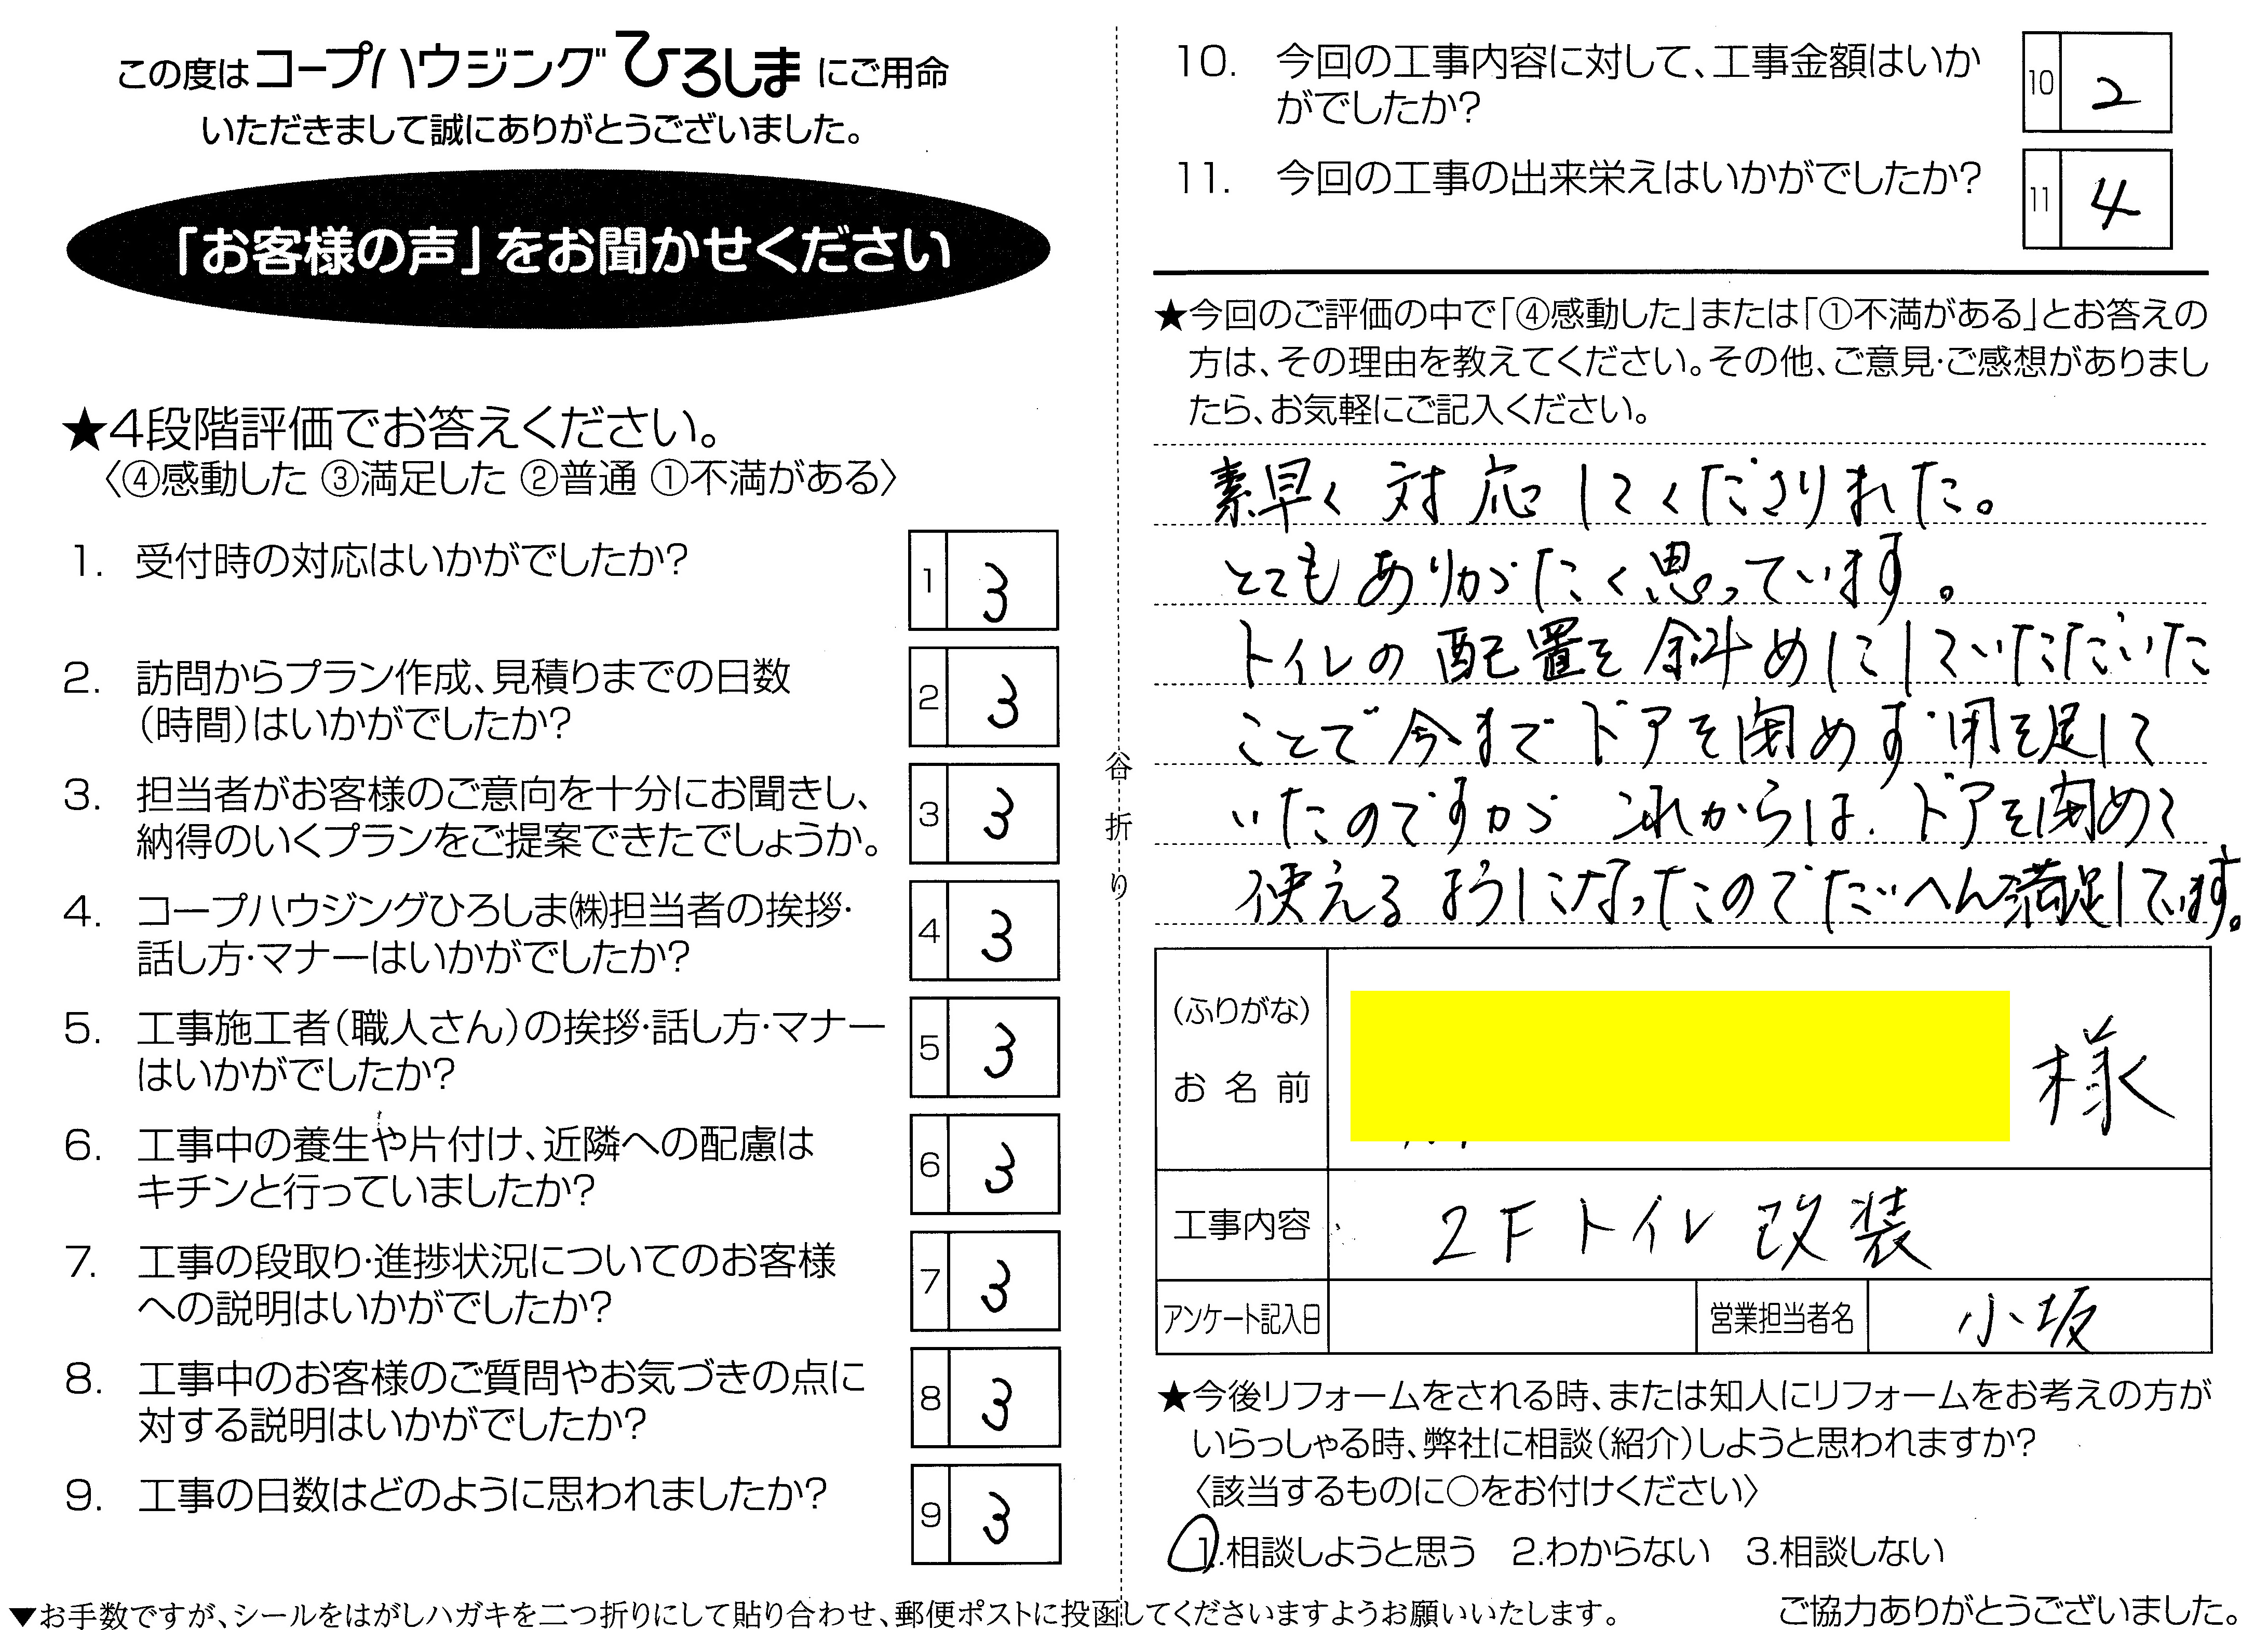 この度はコープハウジングひろしまにご用命
いただきまして誠にありがとうございました。
「お客様の声」をお聞かせください
★4段階評価でお答えください。
〈④感動した ③満足した ②普通 ①不満がある〉
1. 受付時の対応はいかがでしたか? 1 3
2. 訪問からプラン作成、見積りまでの日数
(時間)はいかがでしたか? 2 3
3. 担当者がお客様のご意向を十分にお聞きし、
納得のいくプランをご提案できたでしょうか。 3 3
4. コープハウジングひろしま㈱担当者の挨拶・
話し方・マナーはいかがでしたか? 4 3
5. 工事施工者(職人さん)の挨拶・話し方・マナー
はいかがでしたか? 5 3
6. 工事中の養生や片付け、近隣への配慮は
キチンと行っていましたか? 6 3
7. 工事の段取り・進捗状況についてのお客様
への説明はいかがでしたか? 7 3
8. 工事中のお客様のご質問やお気づきの点に
対する説明はいかがでしたか? 8 3
9. 工事の日数はどのように思われましたか? 9 3
谷折り
10. 今回の工事内容に対して、工事金額はいか
がでしたか? 10 2
11. 今回の工事の出来栄えはいかがでしたか? 11 4
★今回のご評価の中で「④感動した」または「①不満がある」とお答えの
方は、その理由を教えてください。その他、ご意見・ご感想がありまし
たら、お気軽にご記入ください。
素早く対応してくださりました。
とてもありがたく思っています。
トイレの配置を斜めにしていただいた
ことで今までドアを閉めず用を足して
いたのですが これからは、ドアを閉めて
使えるようになったのでたいへん満足しています。
(ふりがな)
お名前 様
工事内容 2F トイレ 改装
アンケート記入日 営業担当者名 小坂
★今後リフォームをされる時、または知人にリフォームをお考えの方が
いらっしゃる時、弊社に相談(紹介)しようと思われますか?
〈該当するものに○をお付けください〉
1.相談しようと思う 2.わからない 3.相談しない
▼お手数ですが、シールをはがしハガキを二つ折りにして貼り合わせ、郵便ポストに投函してくださいますようお願いいたします。
ご協力ありがとうございました。